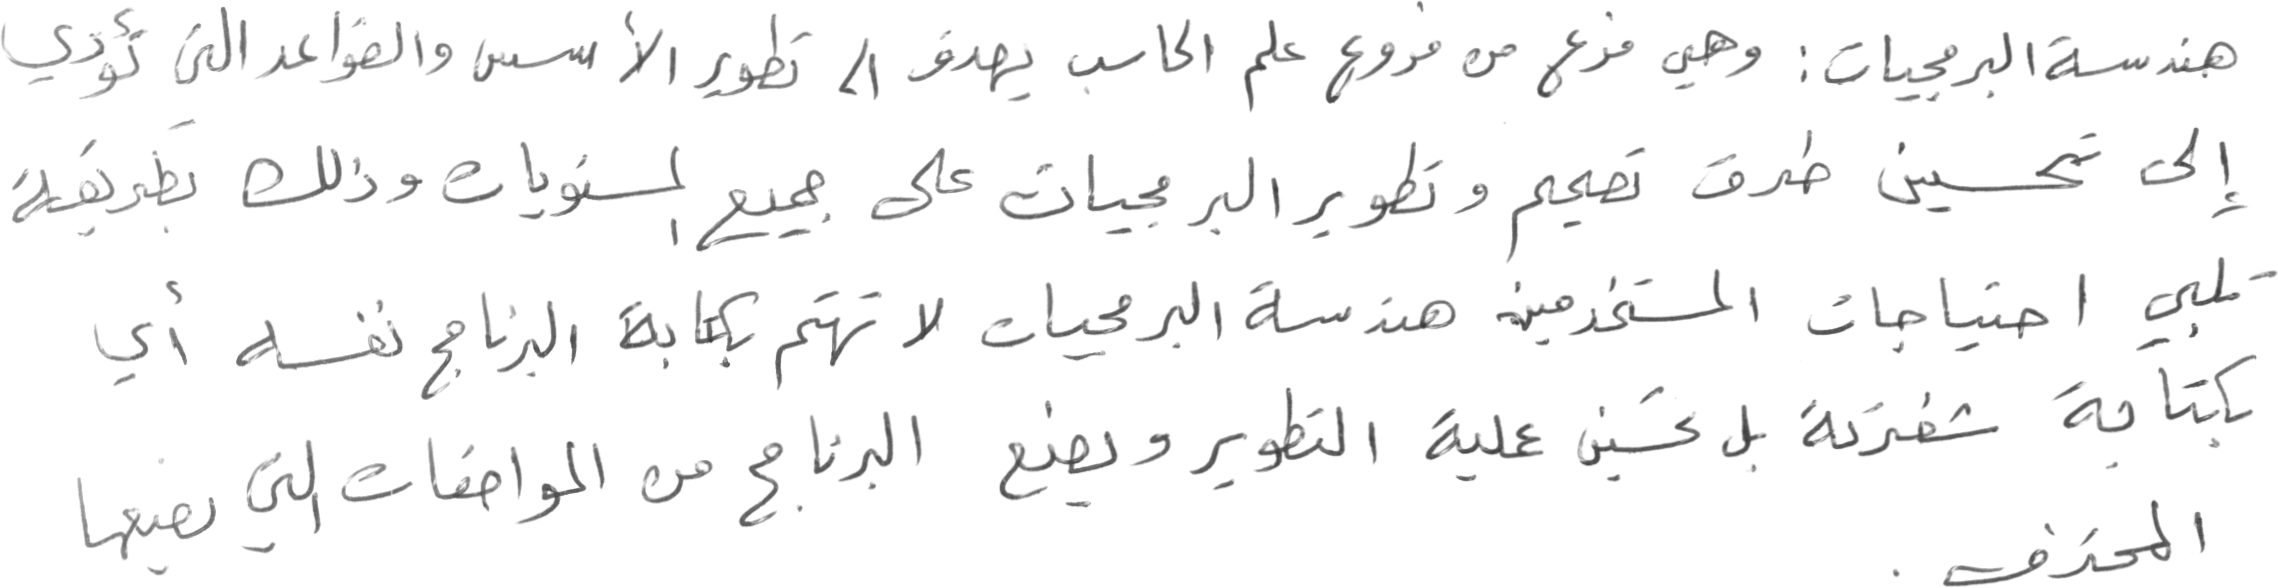 هندسة البرمجيات: وهي فرع من فروع علم الحاسب يهدف الى تطوير الأسس والقواعد التي تؤدي
إلى تحسين طرق تصميم وتطوير البرمجيات على جميع المستويات وذلك بطريقة
تلبي احتياجات المستخدمين هندسة البرمجيات لا تهتم بكتابة البرنامج نفسه أي
بكتابة شفرته بل تحسين عملية التطوير ويصنع البرنامج من المواصفات التي يضعها
المحترف.